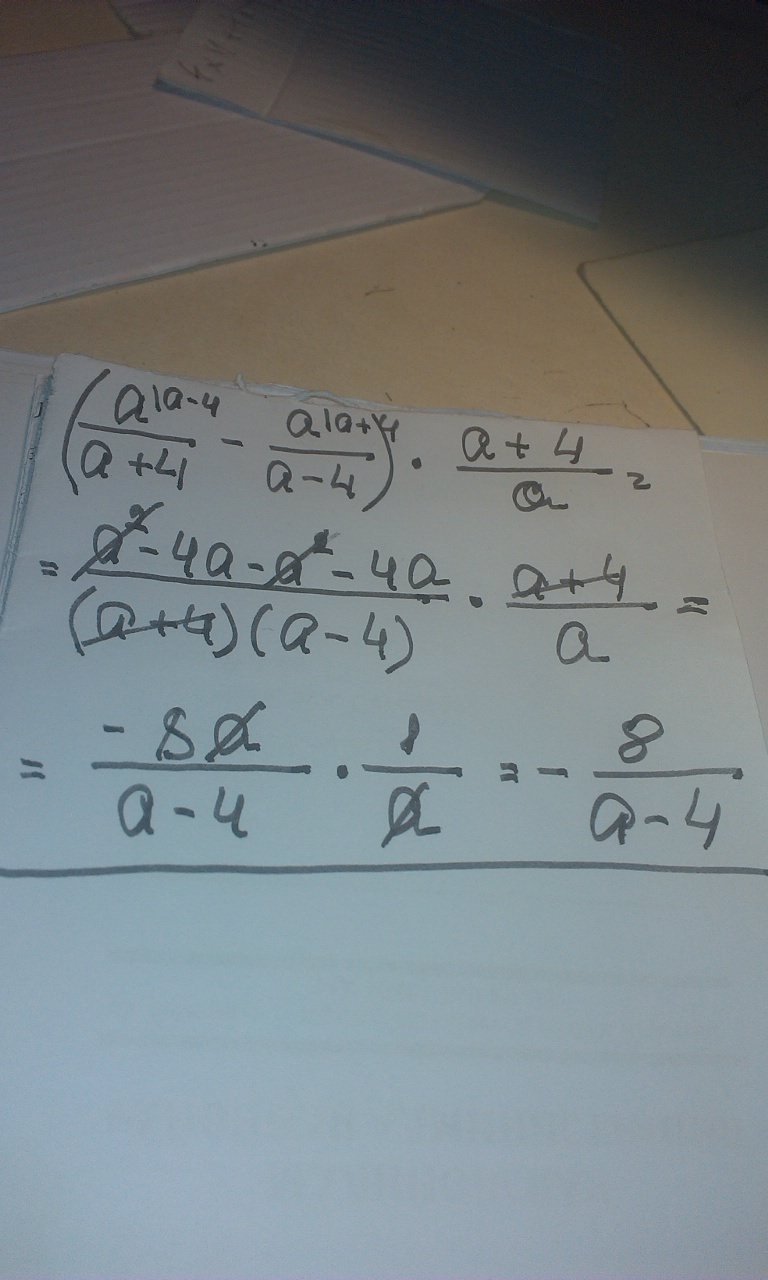 (a|a-4 / a+4 - a|a+4 / a-4) · a+4 / a =
= a² - 4a - a² - 4a / (a+4)(a-4) · a+4 / a =
= -8a / a-4 · 1 / a = - 8 / a-4